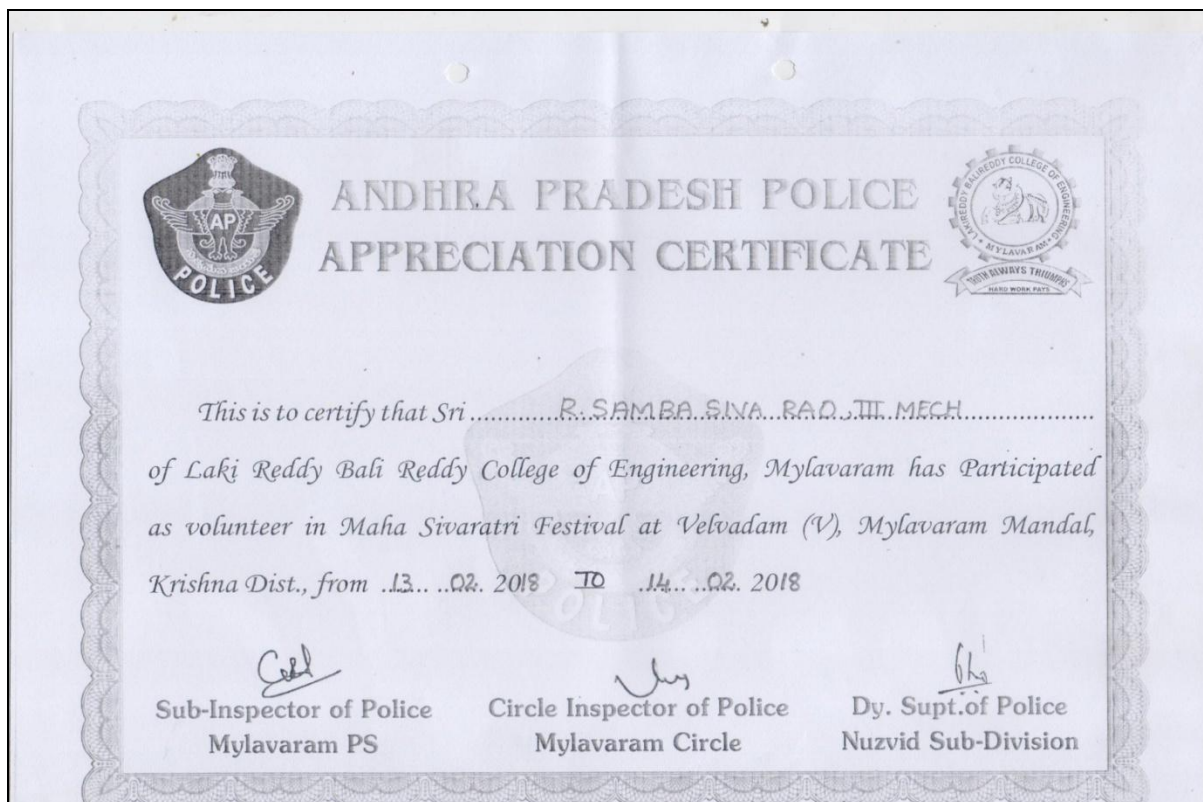 ANDHRA PRADESH POLICE
APPRECIATION CERTIFICATE
AP
POLICE
LAKIREDDY BALIREDDY COLLEGE OF ENGINEERING
MYLAVARAM
TRUTH ALWAYS TRIUMPHS
HARD WORK PAYS
This is to certify that Sri ........... R. SAMBA SIVA RAO, III MECH ....................
of Laki Reddy Bali Reddy College of Engineering, Mylavaram has Participated
as volunteer in Maha Sivaratri Festival at Velvadam (V), Mylavaram Mandal,
Krishna Dist., from ..13... ...02. 2018 TO ..14... ...02. 2018
POLICE
Sub-Inspector of Police
Mylavaram PS
Circle Inspector of Police
Mylavaram Circle
Dy. Supt.of Police
Nuzvid Sub-Division